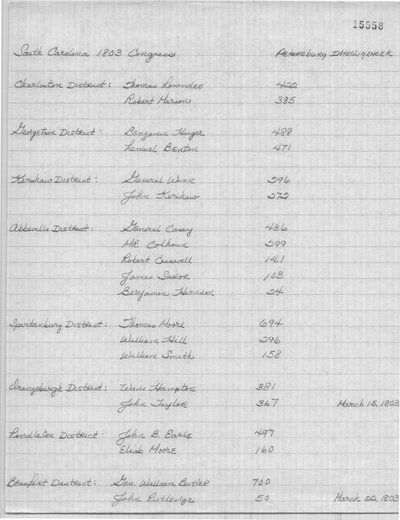 15558
South Carolina 1803 Congress Petersburg Intelligencer
Charleston District: Thomas Lowndes 422
Robert Marion 385
Georgetown District: Benjamin Huger 488
Lemuel Benton 471
Kershaw District: General Winn 296
John Kershaw 272
Abbeville District: General Casey 436
MR. Colhoun 299
Robert Creswell 141
James Saxon 103
Benjamin Herndon 24
Spartanburg District: Thomas Moore 694
William Hill 296
William Smith 158
Orangeburgh District: Wade Hampton 381
John Taylor 367 March 15, 1803
Pendleton District: John B. Earle 497
Eliab Moore 160
Beaufort District: Gen. William Butler 700
John Rutledge 50 March 22, 1803